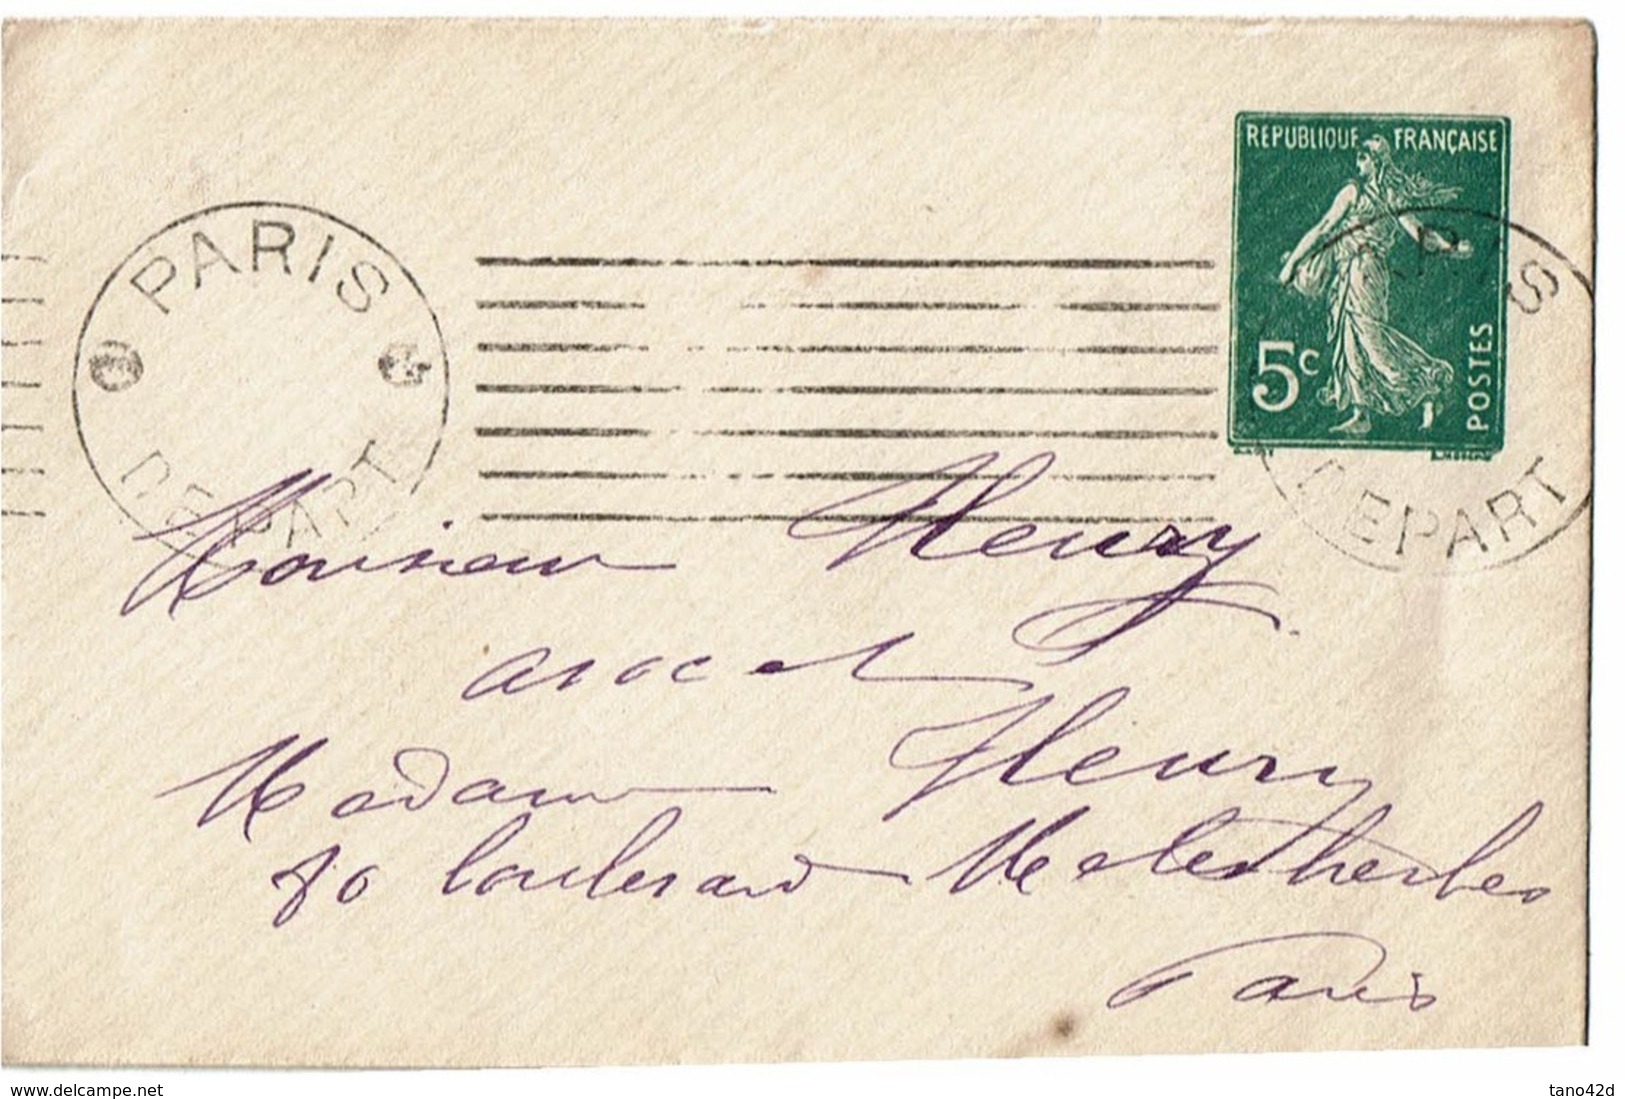 REPUBLIQUE FRANÇAISE
5c
POSTES
PARIS
DEPART
PARIS
DEPART
Monsieur Fleury
avocat
Madame Fleury
80 boulevard Malesherbes
Paris
www.delcampe.net
tano42d